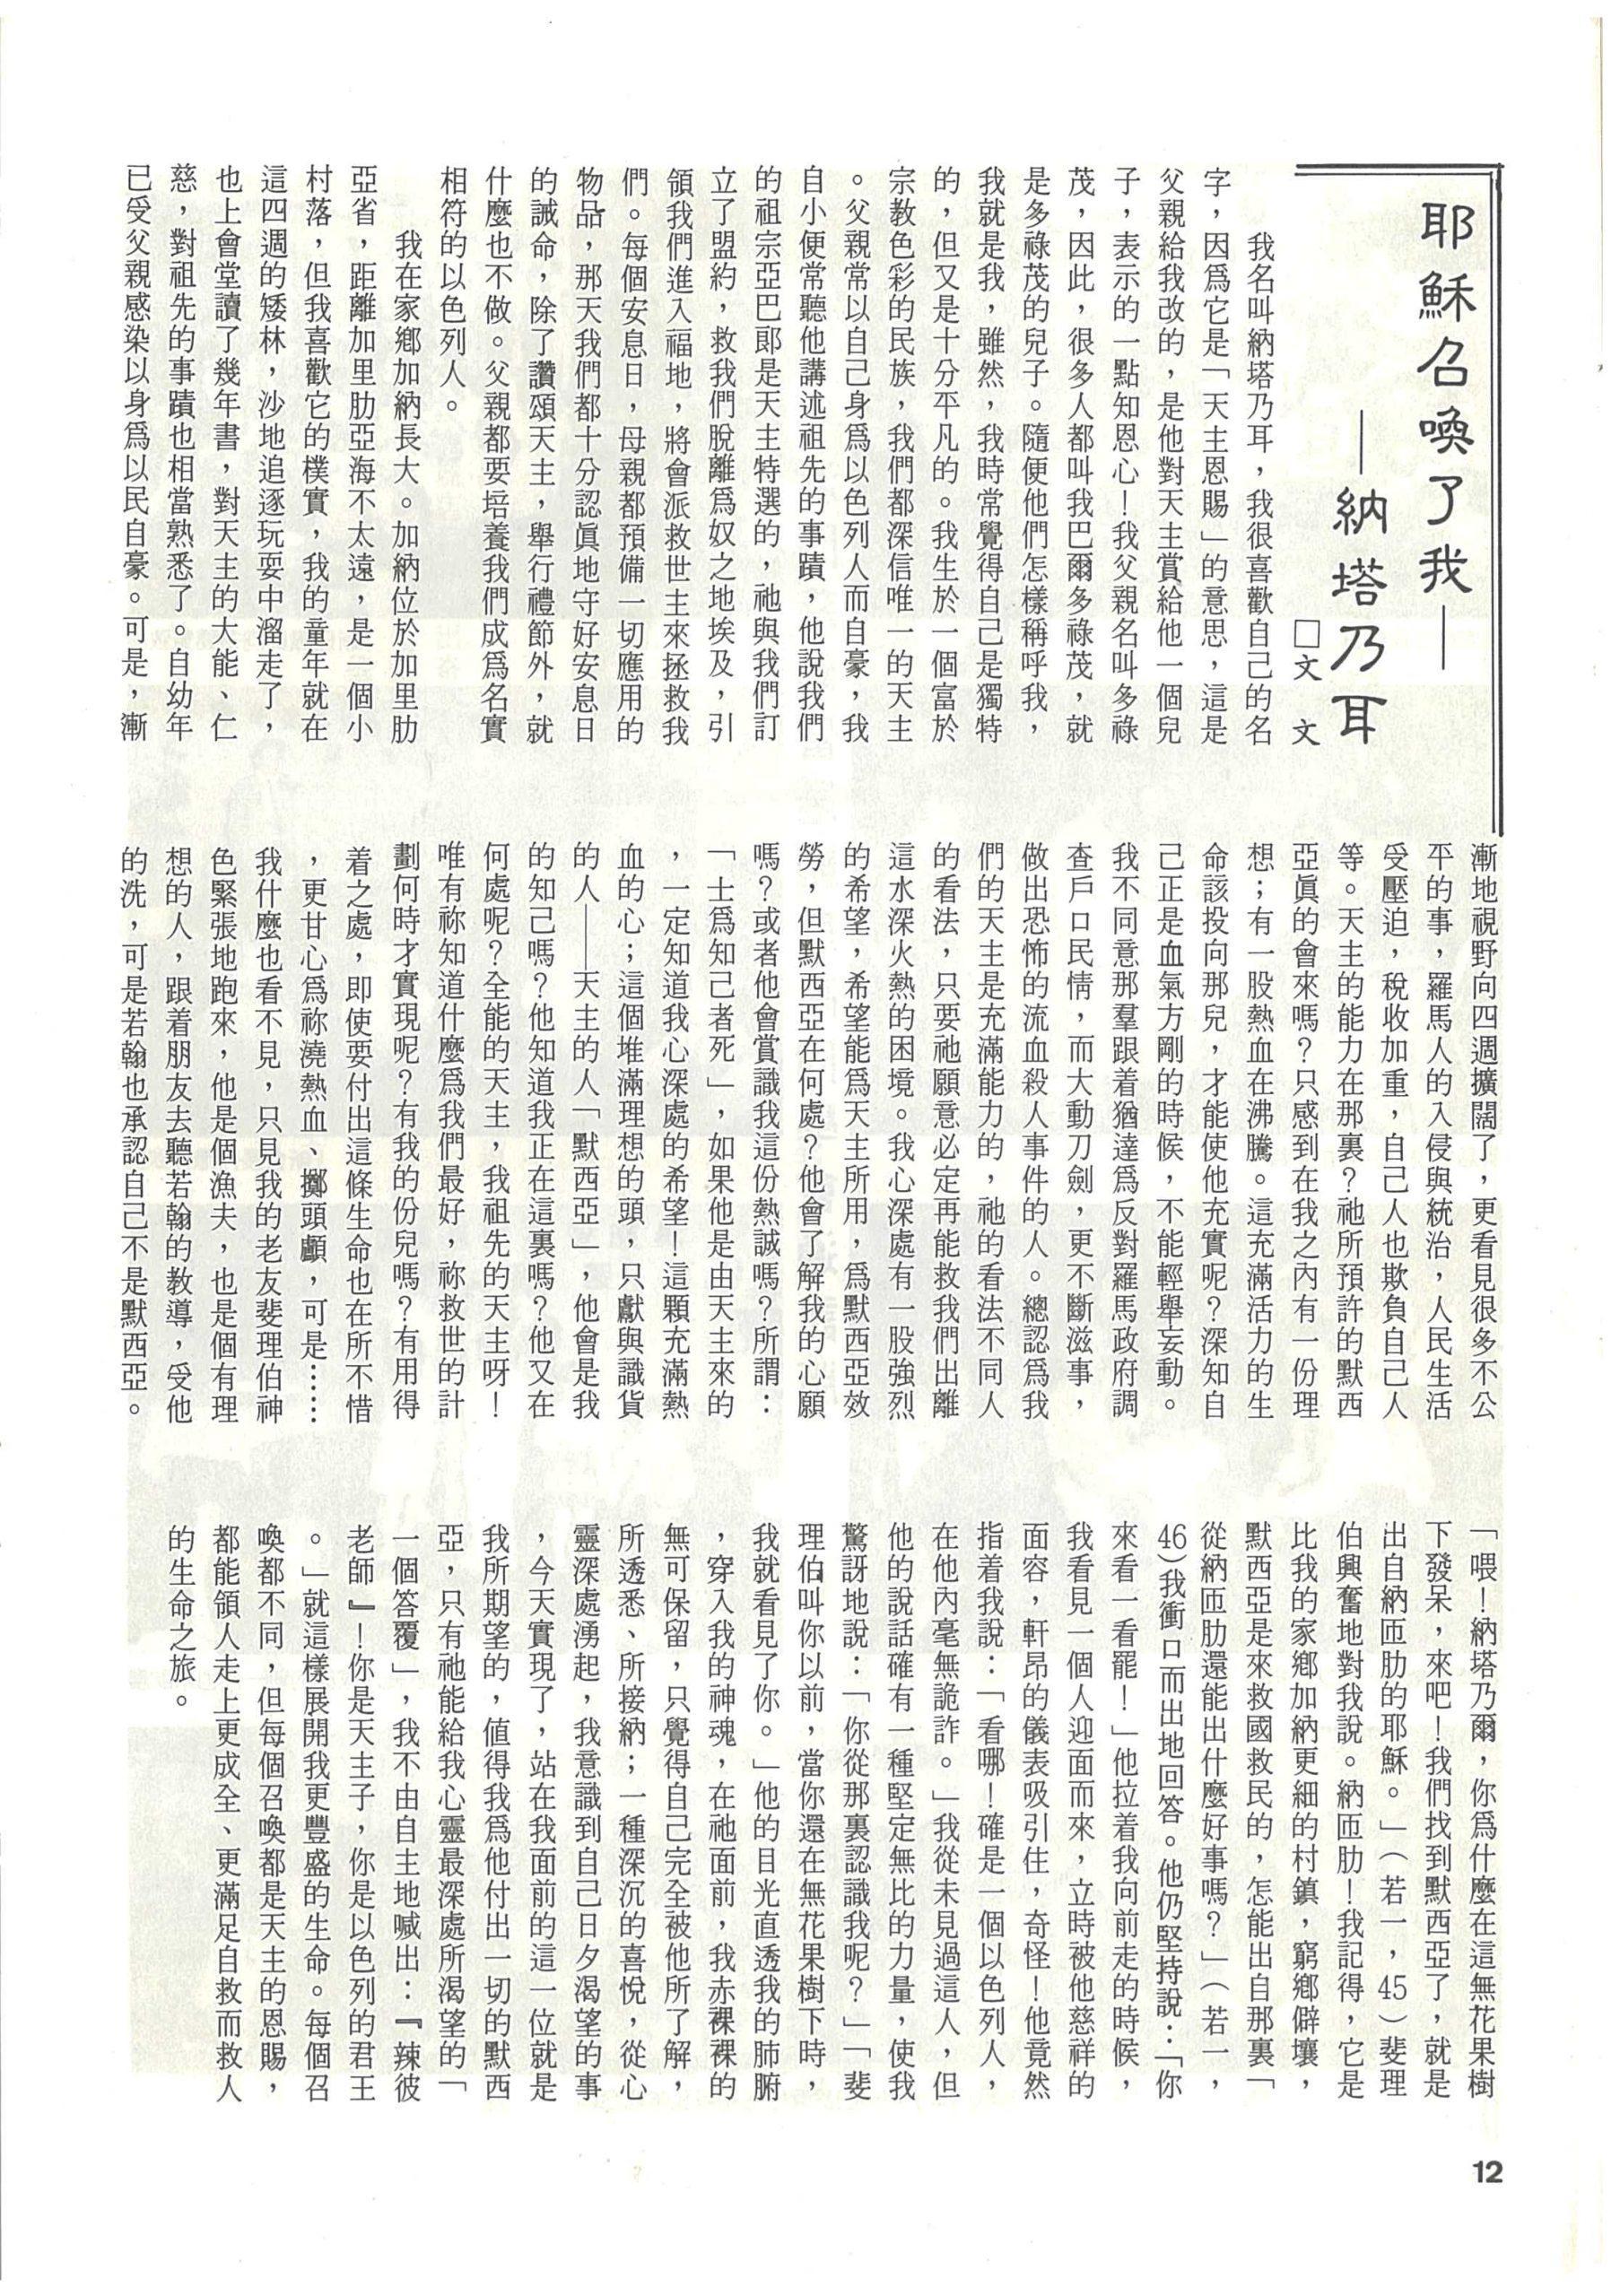 耶穌召喚了我——
——納塔乃耳
□文　文
我名叫納塔乃耳，我很喜歡自己的名
字，因爲它是「天主恩賜」的意思，這是
父親給我改的，是他對天主賞給他一個兒
子，表示的一點知恩心！我父親名叫多祿
茂，因此，很多人都叫我巴爾多祿茂，就
是多祿茂的兒子。隨便他們怎樣稱呼我，
我就是我，雖然，我時常覺得自己是獨特
的，但又是十分平凡的。我生於一個富於
宗教色彩的民族，我們都深信唯一的天主
。父親常以自己身爲以色列人而自豪，我
自小便常聽他講述祖先的事蹟，他說我們
的祖宗亞巴郎是天主特選的，祂與我們訂
立了盟約，救我們脫離爲奴之地埃及，引
領我們進入福地，將會派救世主來拯救我
們。每個安息日，母親都預備一切應用的
物品，那天我們都十分認眞地守好安息日
的誡命，除了讚頌天主，舉行禮節外，就
什麼也不做。父親都要培養我們成爲名實
相符的以色列人。
我在家鄉加納長大。加納位於加里肋
亞省，距離加里肋亞海不太遠，是一個小
村落，但我喜歡它的樸實，我的童年就在
這四週的矮林，沙地追逐玩耍中溜走了，
也上會堂讀了幾年書，對天主的大能、仁
慈，對祖先的事蹟也相當熟悉了。自幼年
已受父親感染以身爲以民自豪。可是，漸
漸地視野向四週擴闊了，更看見很多不公
平的事，羅馬人的入侵與統治，人民生活
受壓迫，稅收加重，自己人也欺負自己人
等。天主的能力在那裏？祂所預許的默西
亞眞的會來嗎？只感到在我之內有一份理
想；有一股熱血在沸騰。這充滿活力的生
命該投向那兒，才能使他充實呢？深知自
己正是血氣方剛的時候，不能輕舉妄動。
我不同意那羣跟着猶達爲反對羅馬政府調
查戶口民情，而大動刀劍，更不斷滋事，
做出恐怖的流血殺人事件的人。總認爲我
們的天主是充滿能力的，祂的看法不同人
的看法，只要祂願意必定再能救我們出離
這水深火熱的困境。我心深處有一股強烈
的希望，希望能爲天主所用，爲默西亞效
勞，但默西亞在何處？他會了解我的心願
嗎？或者他會賞識我這份熱誠嗎？所謂：
「士爲知己者死」，如果他是由天主來的
，一定知道我心深處的希望！這顆充滿熱
血的心；這個堆滿理想的頭，只獻與識貨
的人——天主的人「默西亞」，他會是我
的知己嗎？他知道我正在這裏嗎？他又在
何處呢？全能的天主，我祖先的天主呀！
唯有祢知道什麼爲我們最好，祢救世的計
劃何時才實現呢？有我的份兒嗎？有用得
着之處，即使要付出這條生命也在所不惜
，更甘心爲祢澆熱血、擲頭顱，可是……
我什麼也看不見，只見我的老友斐理伯神
色緊張地跑來，他是個漁夫，也是個有理
想的人，跟着朋友去聽若翰的教導，受他
的洗，可是若翰也承認自己不是默西亞。
「喂！納塔乃爾，你爲什麼在這無花果樹
下發呆，來吧！我們找到默西亞了，就是
出自納匝肋的耶穌。」（若一，45）斐理
伯興奮地對我說。納匝肋！我記得，它是
比我的家鄉加納更細的村鎮，窮鄉僻壤，
默西亞是來救國救民的，怎能出自那裏「
從納匝肋還能出什麼好事嗎？」（若一，
46）我衝口而出地回答。他仍堅持說：「你
來看一看罷！」他拉着我向前走的時候，
我看見一個人迎面而來，立時被他慈祥的
面容，軒昂的儀表吸引住，奇怪！他竟然
指着我說：「看哪！確是一個以色列人，
在他內毫無詭詐。」我從未見過這人，但
他的說話確有一種堅定無比的力量，使我
驚訝地說：「你從那裏認識我呢？」「斐
理伯叫你以前，當你還在無花果樹下時，
我就看見了你。」他的目光直透我的肺腑
，穿入我的神魂，在祂面前，我赤裸裸的
無可保留，只覺得自己完全被他所了解，
所透悉、所接納；一種深沉的喜悅，從心
靈深處湧起，我意識到自己日夕渴望的事
，今天實現了，站在我面前的這一位就是
我所期望的，值得我爲他付出一切的默西
亞，只有祂能給我心靈最深處所渴望的「
一個答覆」，我不由自主地喊出：『辣彼
老師』！你是天主子，你是以色列的君王
。」就這樣展開我更豐盛的生命。每個召
喚都不同，但每個召喚都是天主的恩賜，
都能領人走上更成全、更滿足自救而救人
的生命之旅。
12